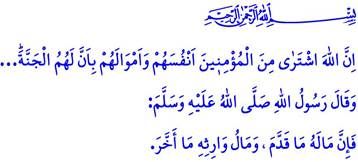 بِسْمِ اللهِ الرَّحْمٰنِ الرَّحِيمِ
اِنَّ اللهَ اشْتَرٰى مِنَ الْمُؤْمِنِينَ اَنْفُسَهُمْ وَاَمْوَالَهُمْ بِاَنَّ لَهُمُ الْجَنَّةَؕ...
وَقَالَ رَسُولُ اللهِ صَلَّى اللهُ عَلَيْهِ وَسَلَّمَ:
فَإِنَّ مَالَهُ مَا قَدَّمَ، وَمَالُ وَارِثِهِ مَا أَخَّرَ.